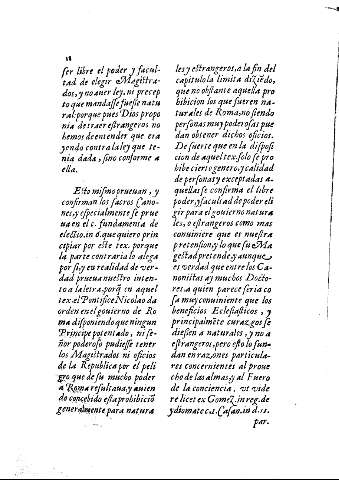 18
ser libre el poder y facul-
tad de elegir Magistra-
dos, y no auer ley, ni precep
to que mandasse fuesse natu
ral: porque pues Dios propo
nia de traer estrangeros no
hemos de entender que era
yendo contra la ley que te-
nia dada, sino conforme a
ella.
Esto mismo prueuan, y
confirman los sacros Cano-
nes, y especialmente se prue
ua en el c. fundamenta de
electio. in 6. que quiero prin
cipiar por este tex. porque
la parte contraria lo alega
por si, y en realidad de ver-
dad prueua nuestro inten-
to a la letra. porq̃ en aquel
tex. el Pontifice Nicolao da
orden en el gouierno de Ro
ma disponiendo que ningun
Principe potentado, ni se-
ñor poderoso pudiesse tener
los Magistrados ni oficios
de la Republica por el peli
gro que de su mucho poder
a Roma resultaua, y auien
do concebido esta prohibiciõ
generalmente para natura
les y estrangeros, a la fin del
capitulo la limita diziẽdo,
que no obstante aquella pro
hibicion los que fueren na-
turales de Roma, no siendo
personas muy poderosas pue
dan obtener dichos oficios.
De suerte que en la disposi
cion de aquel tex. solo se pro
hibe cierto genero, y calidad
de personas y exceptadas a-
quellas se confirma el libre
poder, y facultad de poder ele
gir para el gouierno natura
les, o estrangeros como mas
conuiniere que es nuestra
pretension, y lo que su Ma
gestad pretende, y aunque
es verdad que entre los Ca-
nonistas ay muchos Docto-
res a quien parece seria co
sa muy conuiniente que los
beneficios Eclesiasticos, y
principalmẽte curazgos se
diessen a naturales, y no a
estrangeros, pero esto lo fun-
dan en razones particula-
res concernientes al proue
cho de las almas, y al Fuero
de la conciencia, vt vide
re licet ex Gomez. in reg. de
ydiomate c.2. Casan. in d. 11.
par.